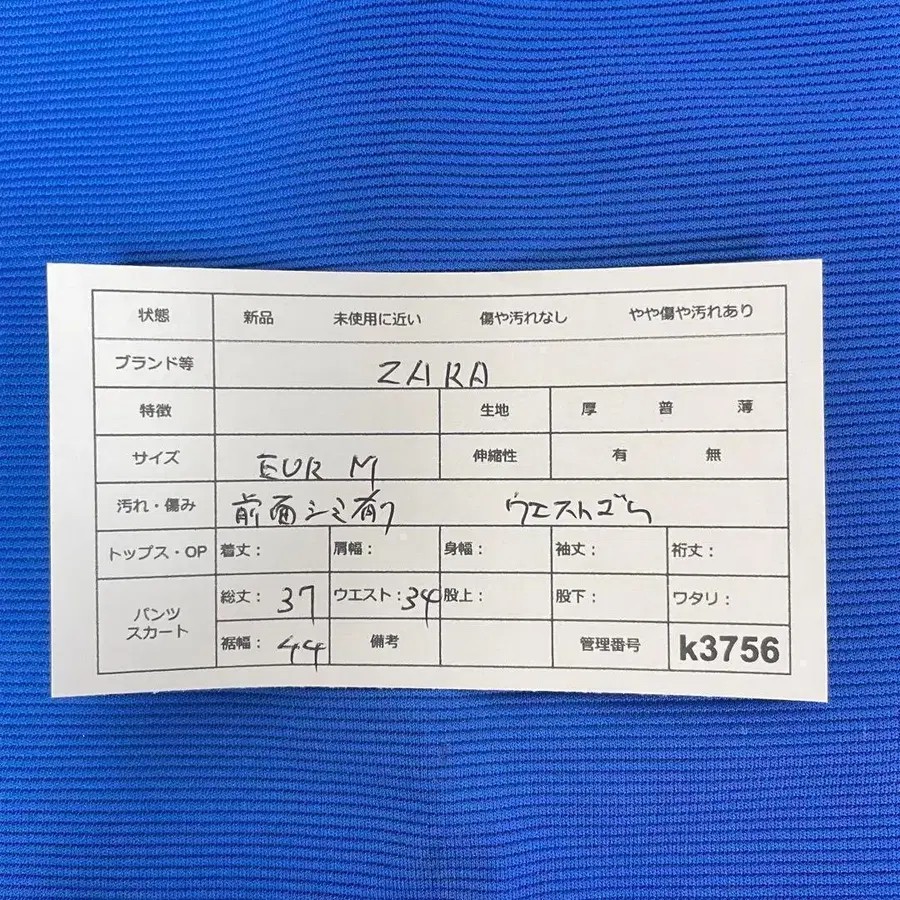 状態 新品 未使用に近い 傷や汚れなし やや傷や汚れあり
ブランド等 ZARA
特徴 生地 厚 普 薄
サイズ EUR M 伸縮性 有 無
汚れ・傷み 前面シミ有り ウエストゴム
トップス・OP 着丈: 肩幅: 身幅: 袖丈: 裄丈:
パンツ スカート 総丈: 37 ウエスト: 34 股上: 股下: ワタリ:
裾幅: 44 備考 管理番号 k3756